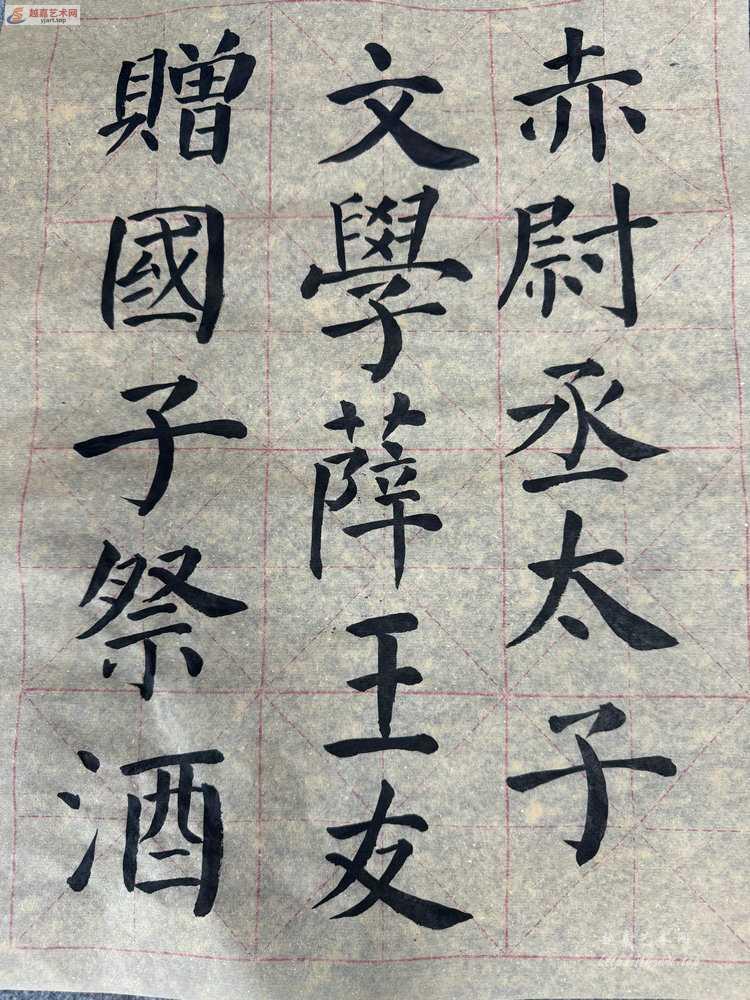 赤尉丞太子
文學薛王友
贈國子祭酒
越嘉艺术网
yjart.top